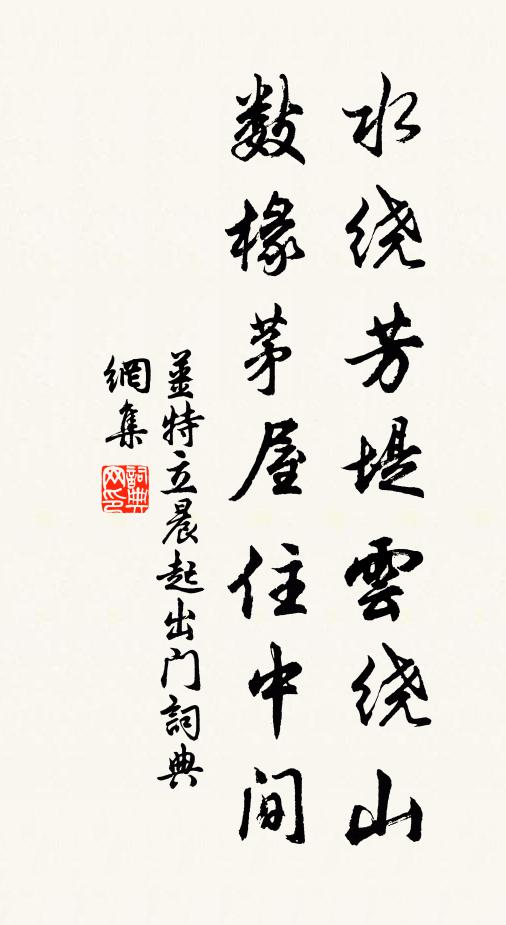 水绕芳堤雲绕山
数椽茅屋住中间
姜特立晨起出门詞典
網集
詞典
网印